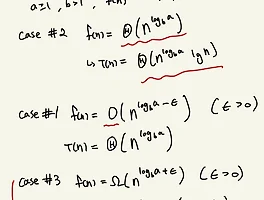 a≥1, b>1,
case #2 f(n) = Θ(n^{log_b a})
↳ T(n) = Θ(n^{log_b a} lg n)
case #1 f(n) = O(n^{log_b a - ε}) (ε>0)
T(n) = Θ(n^{log_b a})
case #3 f(n) = Ω(n^{log_b a + ε}) (ε>0)